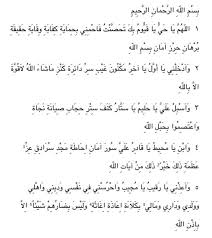 بِسْمِ اللهِ الرَّحْمَانِ الرَّحِيْمِ
١ اَللّٰهُمَّ يَا حَيُّ يَا قَيُّوْمُ بِكَ تَحَصَّنْتُ فَاحْمِنِي بِحِمَايَةِ كِفَايَةِ وِقَايَةِ حَقِيْقَةِ
بُرْهَانِ حِرْزِ اَمَانِ بِسْمِ اللهِ
٢ وَاَدْخِلْنِي يَا اَوَّلُ يَا اٰخِرُ مَكْنُوْنَ غَيْبِ سِرِّ دَائِرَةِ كَنْزِ مَاشَاءَ اللهُ لاَقُوَّةَ
اِلاَّ بِاللهِ
٣ وَاَسْبِلْ عَلَيَّ يَا حَلِيْمُ يَا سَتَّارُ كَنَفَ سِتْرِ حِجَابِ صِيَانَةِ نَجَاةِ
وَاعْتَصِمُوا بِحَبْلِ اللهِ
٤ وَابْنِ يَا مُحِيْطُ يَا قَادِرُ عَلَيَّ سُوْرَ اَمَانِ اِحَاطَةِ مَجْدِ سُرَادِقِ عِزِّ
عَظَمَةِ ذٰلِكَ خَيْرٌ ذٰلِكَ مِنْ اٰيَاتِ اللهِ
٥ وَاَعِذْنِي يَا رَقِيْبُ يَا مُجِيْبُ وَاحْرُسْنِي فِي نَفْسِي وَدِيْنِي وَاَهْلِي
وَوَلَدِي وَدَارِي وَمَالِي بِكَلاَءَةِ اِعَاذَةِ اِغَاثَةِ وَلَيْسَ بِضَارِّهِمْ شَيْئًا اِلاَّ
بِاِذْنِ اللهِ